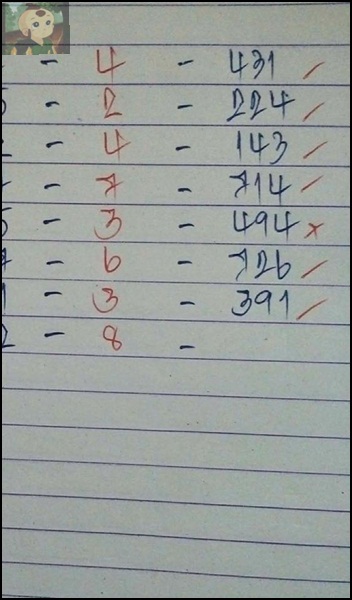 - 4 - 431 /
5 - 2 - 224 /
- 4 - 143 /
- 7 - 714 /
5 - 3 - 494 ×
7 - 6 - 726 /
1 - 3 - 391 /
2 - 8 -